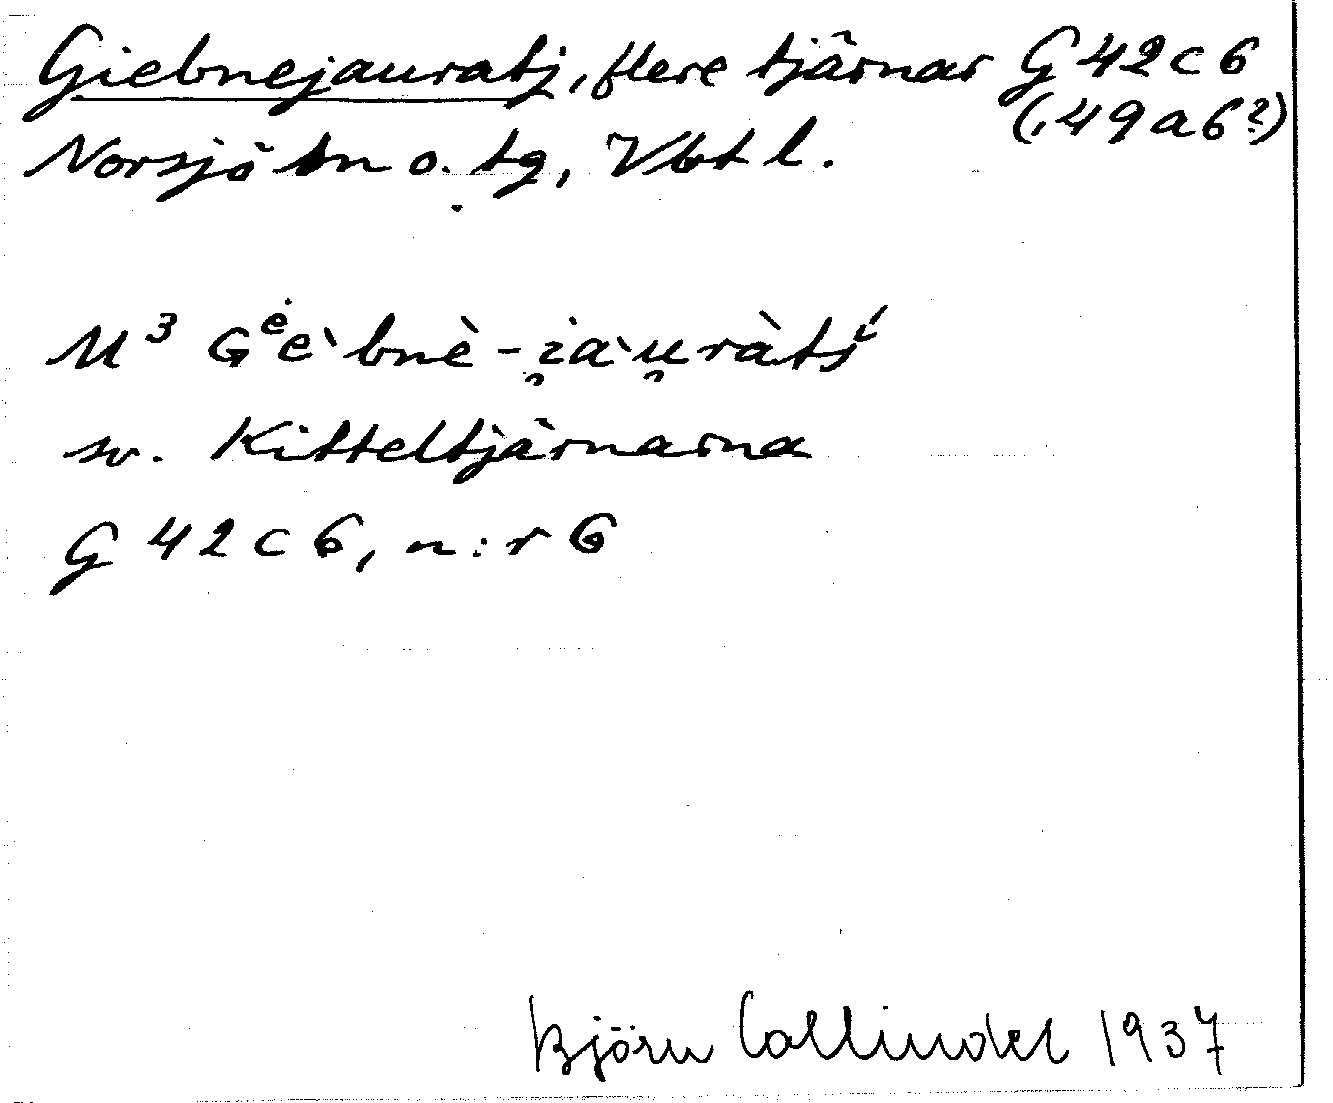 Giebnejauratj, flere tjärnar G 42 c 6
(, 49 a 6?)
Norsjö sn o. tg, Vbt l.
M³ Gėèbnè-i̯àu̯ràtś
sv. Kitteltjärnarna
G 42 c 6, n:r 6
Björn Collinder 1937